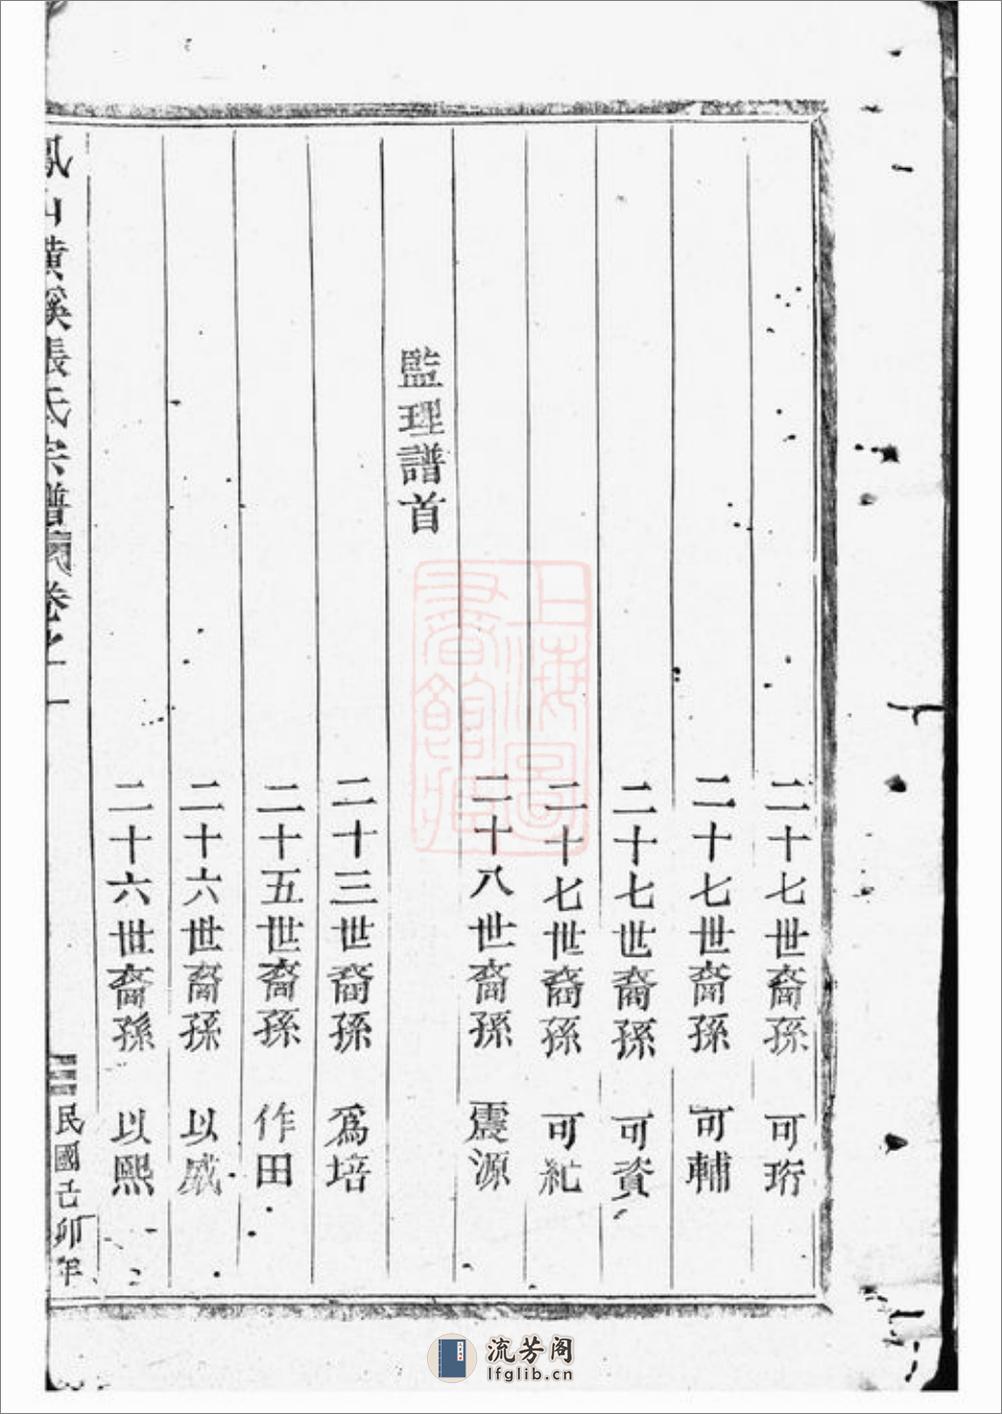 二十七世裔孫 可珩
二十七世裔孫 可輔
二十七世裔孫 可資
二十七世裔孫 可紀
二十八世裔孫 震源
監理譜首
二十三世裔孫 爲培
二十五世裔孫 作田
二十六世裔孫 以成
二十六世裔孫 以熙
鳳山黄溪張氏宗譜 卷之一
民國己卯年
上海圖書館藏
流芳阁
lfglib.cn